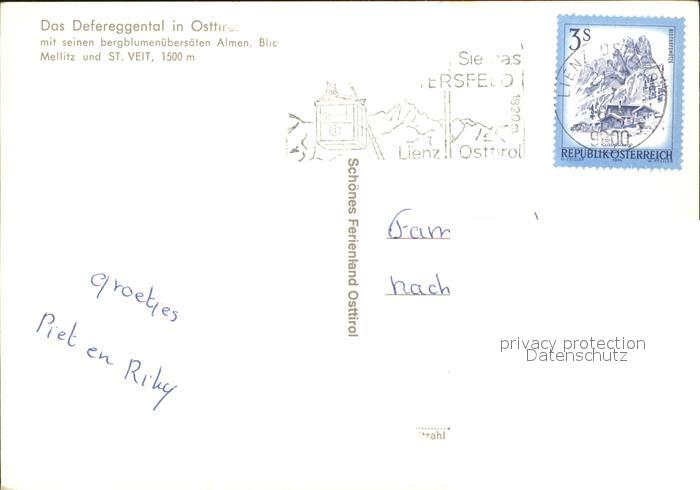 Das Defereggental in Osttirol
mit seinen bergblumenübersäten Almen. Blic
Mellitz und ST. VEIT, 1500 m
Sie
ERSFELD
1820 m
Lienz Osttirol
3 S
LIENZ
9900
REPUBLIK ÖSTERREICH
Schönes Ferienland Osttirol
Fam
nach
groetjes
Piet en Riky
privacy protection
Datenschutz
tzahl